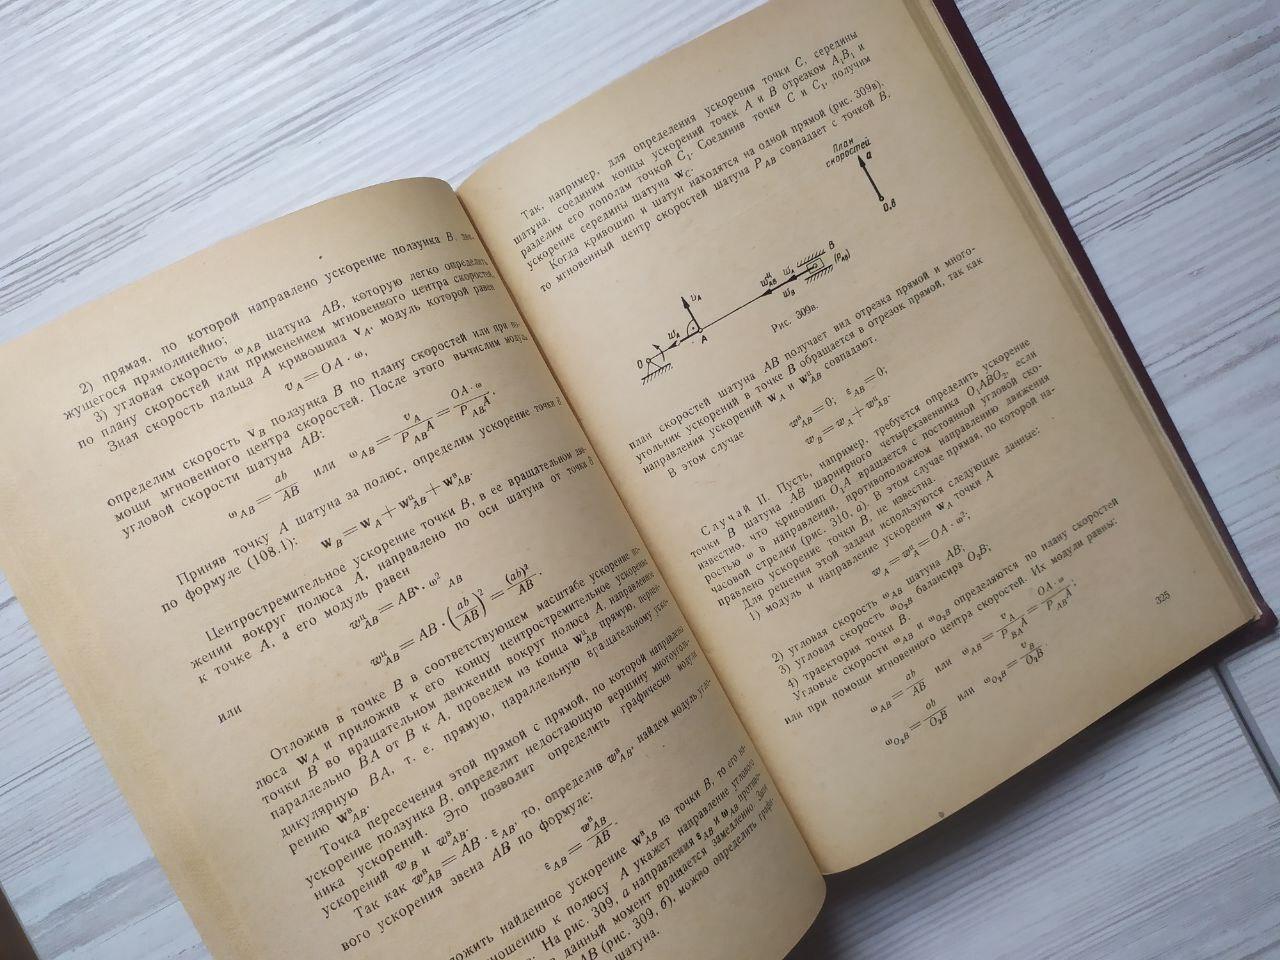 2) прямая, по которой направлено ускорение ползунка B, дви-
жущегося прямолинейно;
3) угловая скорость ω_AB шатуна AB, которую легко определить
по плану скоростей или применением мгновенного центра скоростей.
Зная скорость пальца A кривошипа v_A, модуль которой равен
v_A = OA · ω,
определим скорость v_B ползунка B по плану скоростей или при по-
мощи мгновенного центра скоростей. После этого вычислим модуль
угловой скорости шатуна AB:
ω_AB = ab/AB или ω_AB = v_A/P_AB A = OA · ω/P_AB A.
Приняв точку A шатуна за полюс, определим ускорение точки B
по формуле (108.1):
w_B = w_A + w^ц_AB + w^в_AB.
Центростремительное ускорение точки B, в ее вращательном дви-
жении вокруг полюса A, направлено по оси шатуна от точки B
к точке A, а его модуль равен
w^ц_AB = AB · ω²_AB
или
w^ц_AB = AB · (ab/AB)² = (ab)²/AB.
Отложив в точке B в соответствующем масштабе ускорение по-
люса w_A и приложив к его концу центростремительное ускорение
точки B во вращательном движении вокруг полюса A, направленное
параллельно BA от B к A, проведем из конца w^ц_AB прямую, перпен-
дикулярную BA, т. е. прямую, параллельную вращательному уско-
рению w^в_AB.
Точка пересечения этой прямой с прямой, по которой направлено
ускорение ползунка B, определит недостающую вершину многоуголь-
ника ускорений. Это позволит определить графически модули
ускорений w_B и w^в_AB.
Так как w^в_AB = AB · ε_AB, то, определив w^в_AB, найдем модуль угло-
вого ускорения звена AB по формуле:
ε_AB = w^в_AB/AB.
найденное ускорение w^в_AB из точки B, то его на-
к полюсу A укажет направление углового
На рис. 309, а направления ε_AB и ω_AB противо-
данный момент вращается замедленно. Зная
AB (рис. 309, б), можно определить графи-
шатуна.
Так, например, для определения ускорения точки C, середины
шатуна, соединим концы ускорений точек A и B отрезком A₁B₁ и
разделим его пополам точкой C₁. Соединив точки C и C₁, получим
ускорение середины шатуна w_C.
Когда кривошип и шатун находятся на одной прямой (рис. 309в),
то мгновенный центр скоростей шатуна P_AB совпадает с точкой B,
План
скоростей
a
O,b
O
w_A
v_A
A
w^ц_AB
w_A
w_B
B
(P_AB)
Рис. 309в.
план скоростей шатуна AB получает вид отрезка прямой и много-
угольник ускорений в точке B обращается в отрезок прямой, так как
направления ускорений w_A и w^ц_AB совпадают.
В этом случае
w^в_AB = 0; ε_AB = 0;
w_B = w_A + w^ц_AB.
Случай II. Пусть, например, требуется определить ускорение
точки B шатуна AB шарнирного четырехзвенника O₁ABO₂, если
известно, что кривошип O₁A вращается с постоянной угловой ско-
ростью ω в направлении, противоположном направлению движения
часовой стрелки (рис. 310, а). В этом случае прямая, по которой на-
правлено ускорение точки B, не известна.
Для решения этой задачи используются следующие данные:
1) модуль и направление ускорения w_A точки A
w_A = w^ц_A = OA · ω²;
2) угловая скорость ω_AB шатуна AB,
3) угловая скорость ω_O₂B балансира O₂B;
4) траектория точки B.
Угловые скорости ω_AB и ω_O₂B определяются по плану скоростей
или при помощи мгновенного центра скоростей. Их модули равны:
ω_AB = ab/AB или ω_AB = v_A/P_BA A = OA · ω/P_AB A;
ω_O₂B = ob/O₂B или ω_O₂B = v_B/O₂B.
325